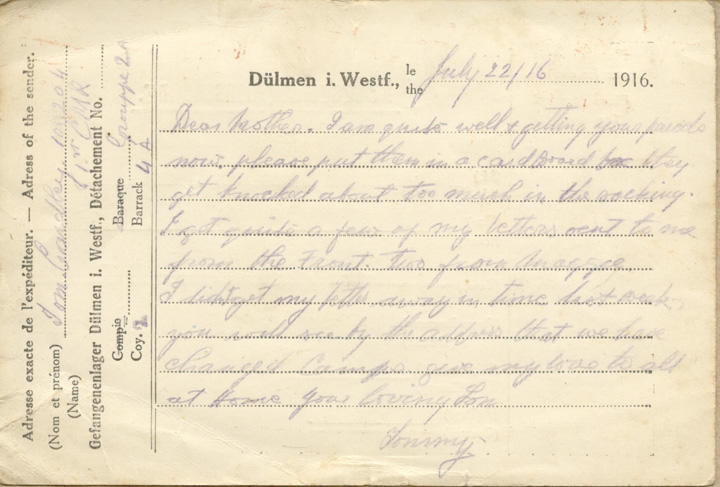 Adresse exacte de l'expéditeur. — Adress of the sender.
(Nom et prénom) Tom
(Name)
1st CMR
Gefangenenlager Dülmen i. Westf., Détachement No.
Baraque Grouppe 2A
Barrack 4A
Compie
Coy. 2
Dülmen i. Westf., le
the July 22/16 1916.
Dear Mother. I am quite well & getting your parcels
now, please put them in a card board box they
get knocked about too much in the sacking.
I get quite a few of my letters sent to me
from the Front. Two from Maggie.
I didt get my letter away in time last week,
you will see by the address that we have
changed Camps give my love to all
at Home your loving Son
Tommy